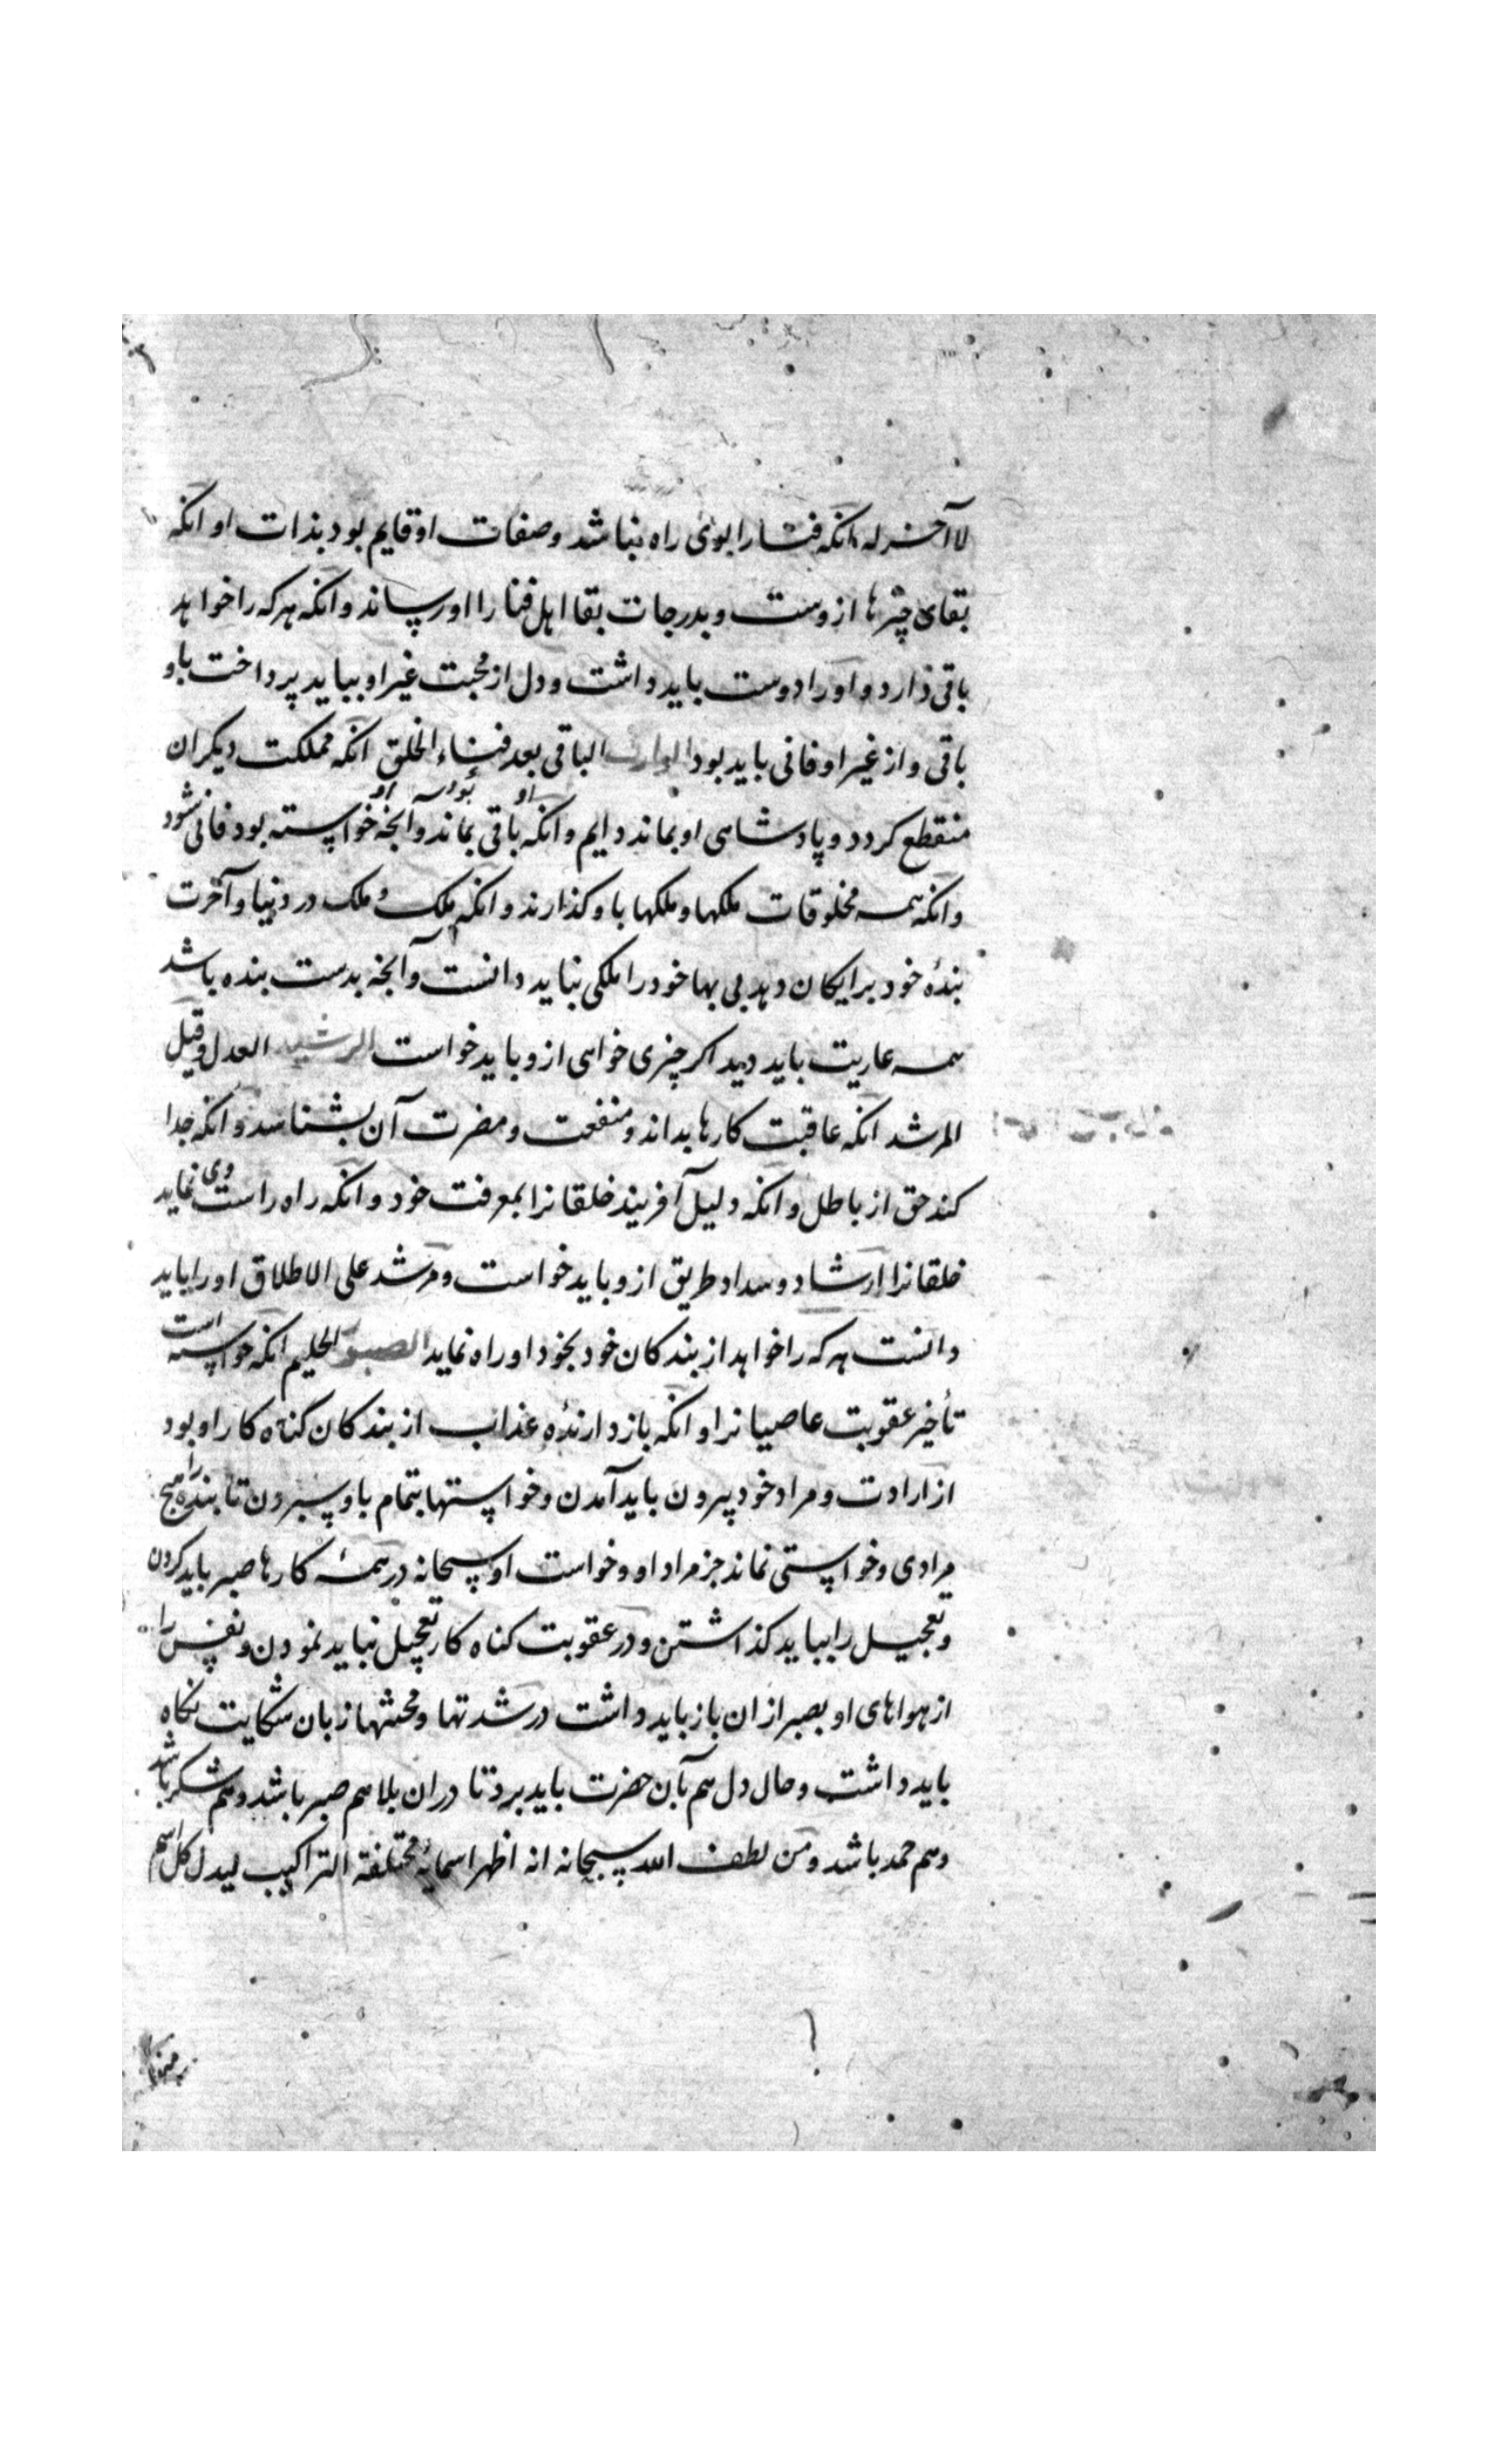 لا آخر له انکه فنا را بوی راه نباشد و صفات او قایم بود بذات او انکه
بقای چیزها ازوست و بدرجات بقا اهل فنا را او رساند و انکه هر که را خواهد
باقی دارد و او را دوست باید داشت و دل از محبت غیر او بباید پرداخت باو
باقی و از غیر او فانی باید بود الوارث الباقی بعد فناء الخلق انکه مملکت دیکران
منقطع کردد و پادشاهی او بماند دایم و انکه باقی بماند و آنچه خواسته بود فانی نشود
او بود او
و انکه همه مخلوقات ملکها و ملکها باو کذارند و انکه ملک و ملک در دنیا و آخرت
بندهٔ خود برایکان دهد بی بها خود را ملکی نباید دانست و آنچه بدست بنده باشد
همه عاریت باید دید اکر چیزی خواهی ازو باید خواست الرشید العدل و قیل
المرشد انکه عاقبت کارها بداند و منفعت و مضرت آن بشناسد و انکه جدا
کند حق از باطل و انکه دلیل آفریند خلقانرا بمعرفت خود و انکه راه راست وی نماید
خلقانرا ارشاد و سداد طریق ازو باید خواست و مرشد علی الاطلاق او را باید
دانست هر که را خواهد از بندکان خود بخود او راه نماید الصبور الحلیم انکه خواسته است
تأخیر عقوبت عاصیانرا و انکه بازدارندهٔ عذاب از بندکان کناه کار او بود
از ارادت و مراد خود بیرون باید آمدن و خواستها بتمام باو سپردن تا بنده را هیچ
مرادی و خواستی نماند جز مراد او و خواست او سبحانه در همهٔ کارها صبر باید کردن
و تعجیل را بباید کذاشتن و در عقوبت کناه کار تعجیل نباید نمودن و نفس را
از هواهای او بصبر ازان باز باید داشت در شدتها و محنتها زبان شکایت نکاه
باید داشت و حال دل هم بآن حضرت باید برد تا دران بلا هم صبر باشد و هم شکر باشد
و هم حمد باشد و من لطف الله سبحانه انه اظهر اسمایه مختلفة التراکیب لیدل کل اسم